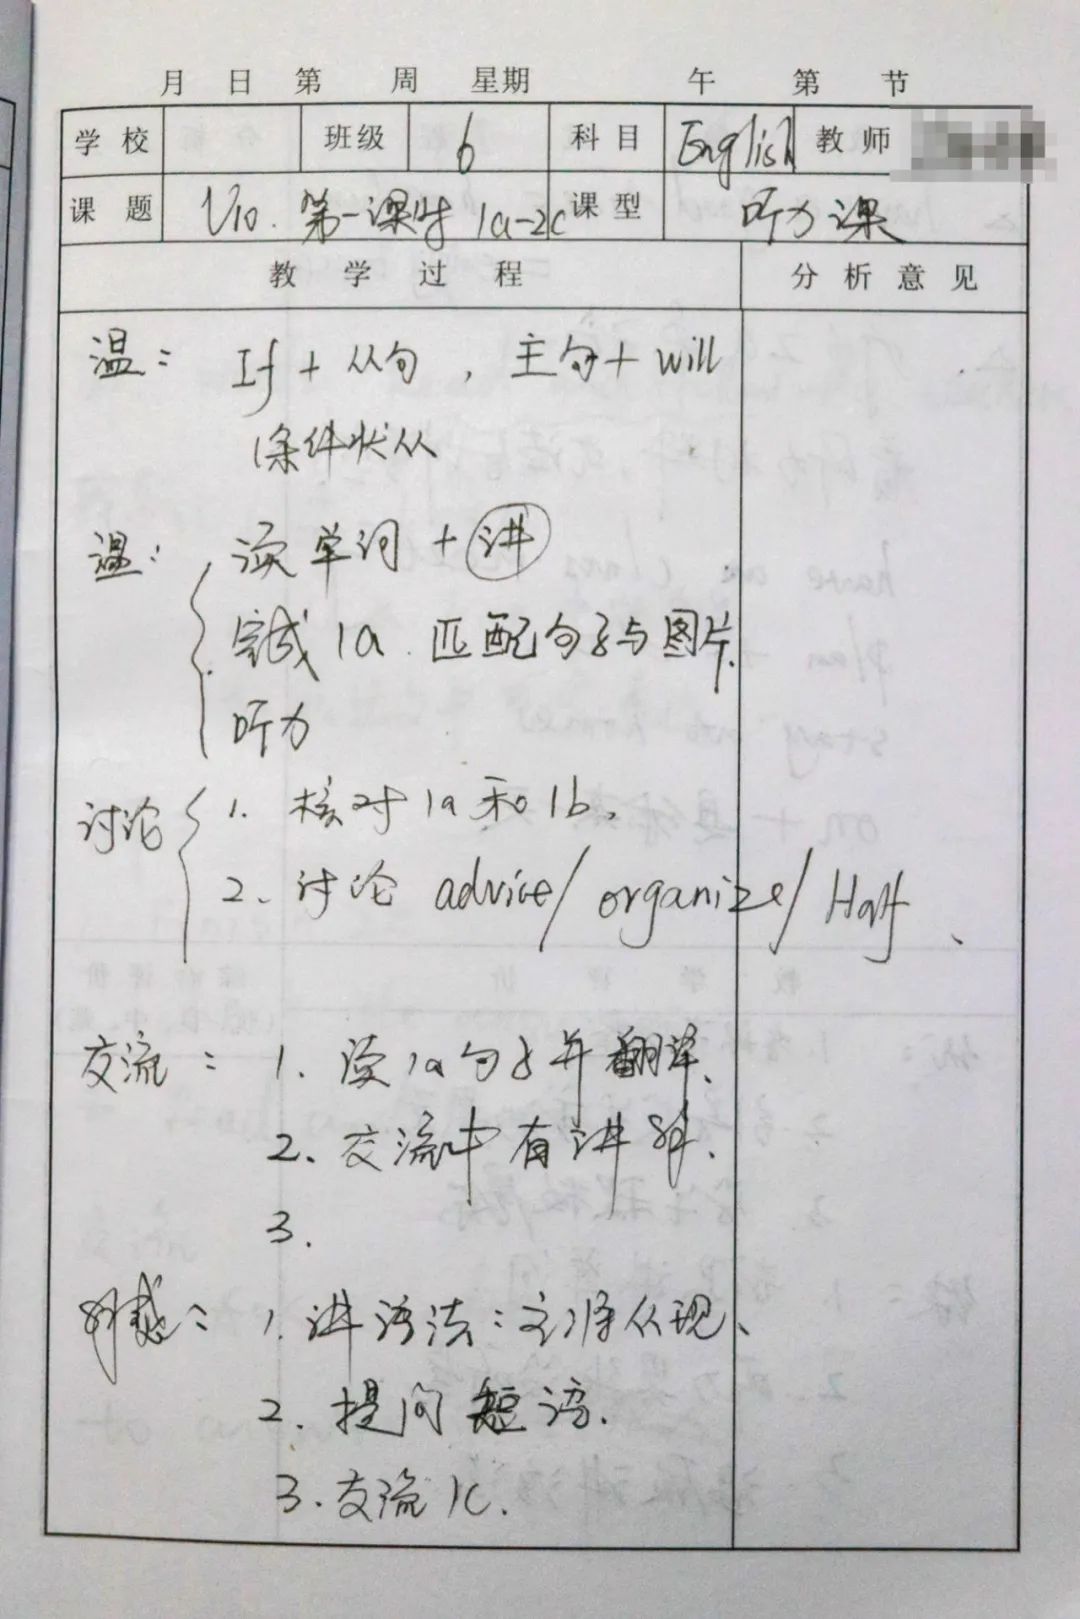 月 日 第 周 星期 午 第 节
学校 班级 6 科目 English 教师
课题 U10. 第一课时 1a-2c 课型 听力课
教学过程 分析意见
温: If + 从句, 主句 + will
条件状从
温: 读单词 + 讲
完成 1a 匹配句子与图片.
听力
讨论 1. 核对 1a 和 1b.
2. 讨论 advice/ organize/ Half、
交流: 1. 读 1a 句子并翻译.
2. 交流中有讲解.
3.
解惑: 1. 讲语法: 主将从现、
2. 提问短语.
3. 交流 1c.